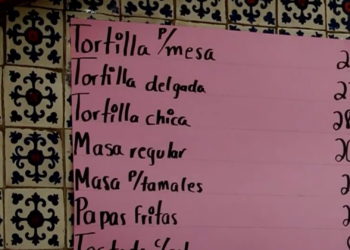 Tortilla P/mesa
Tortilla delgada
Tortilla chica
Masa regular
Masa P/tamales
Papas fritas